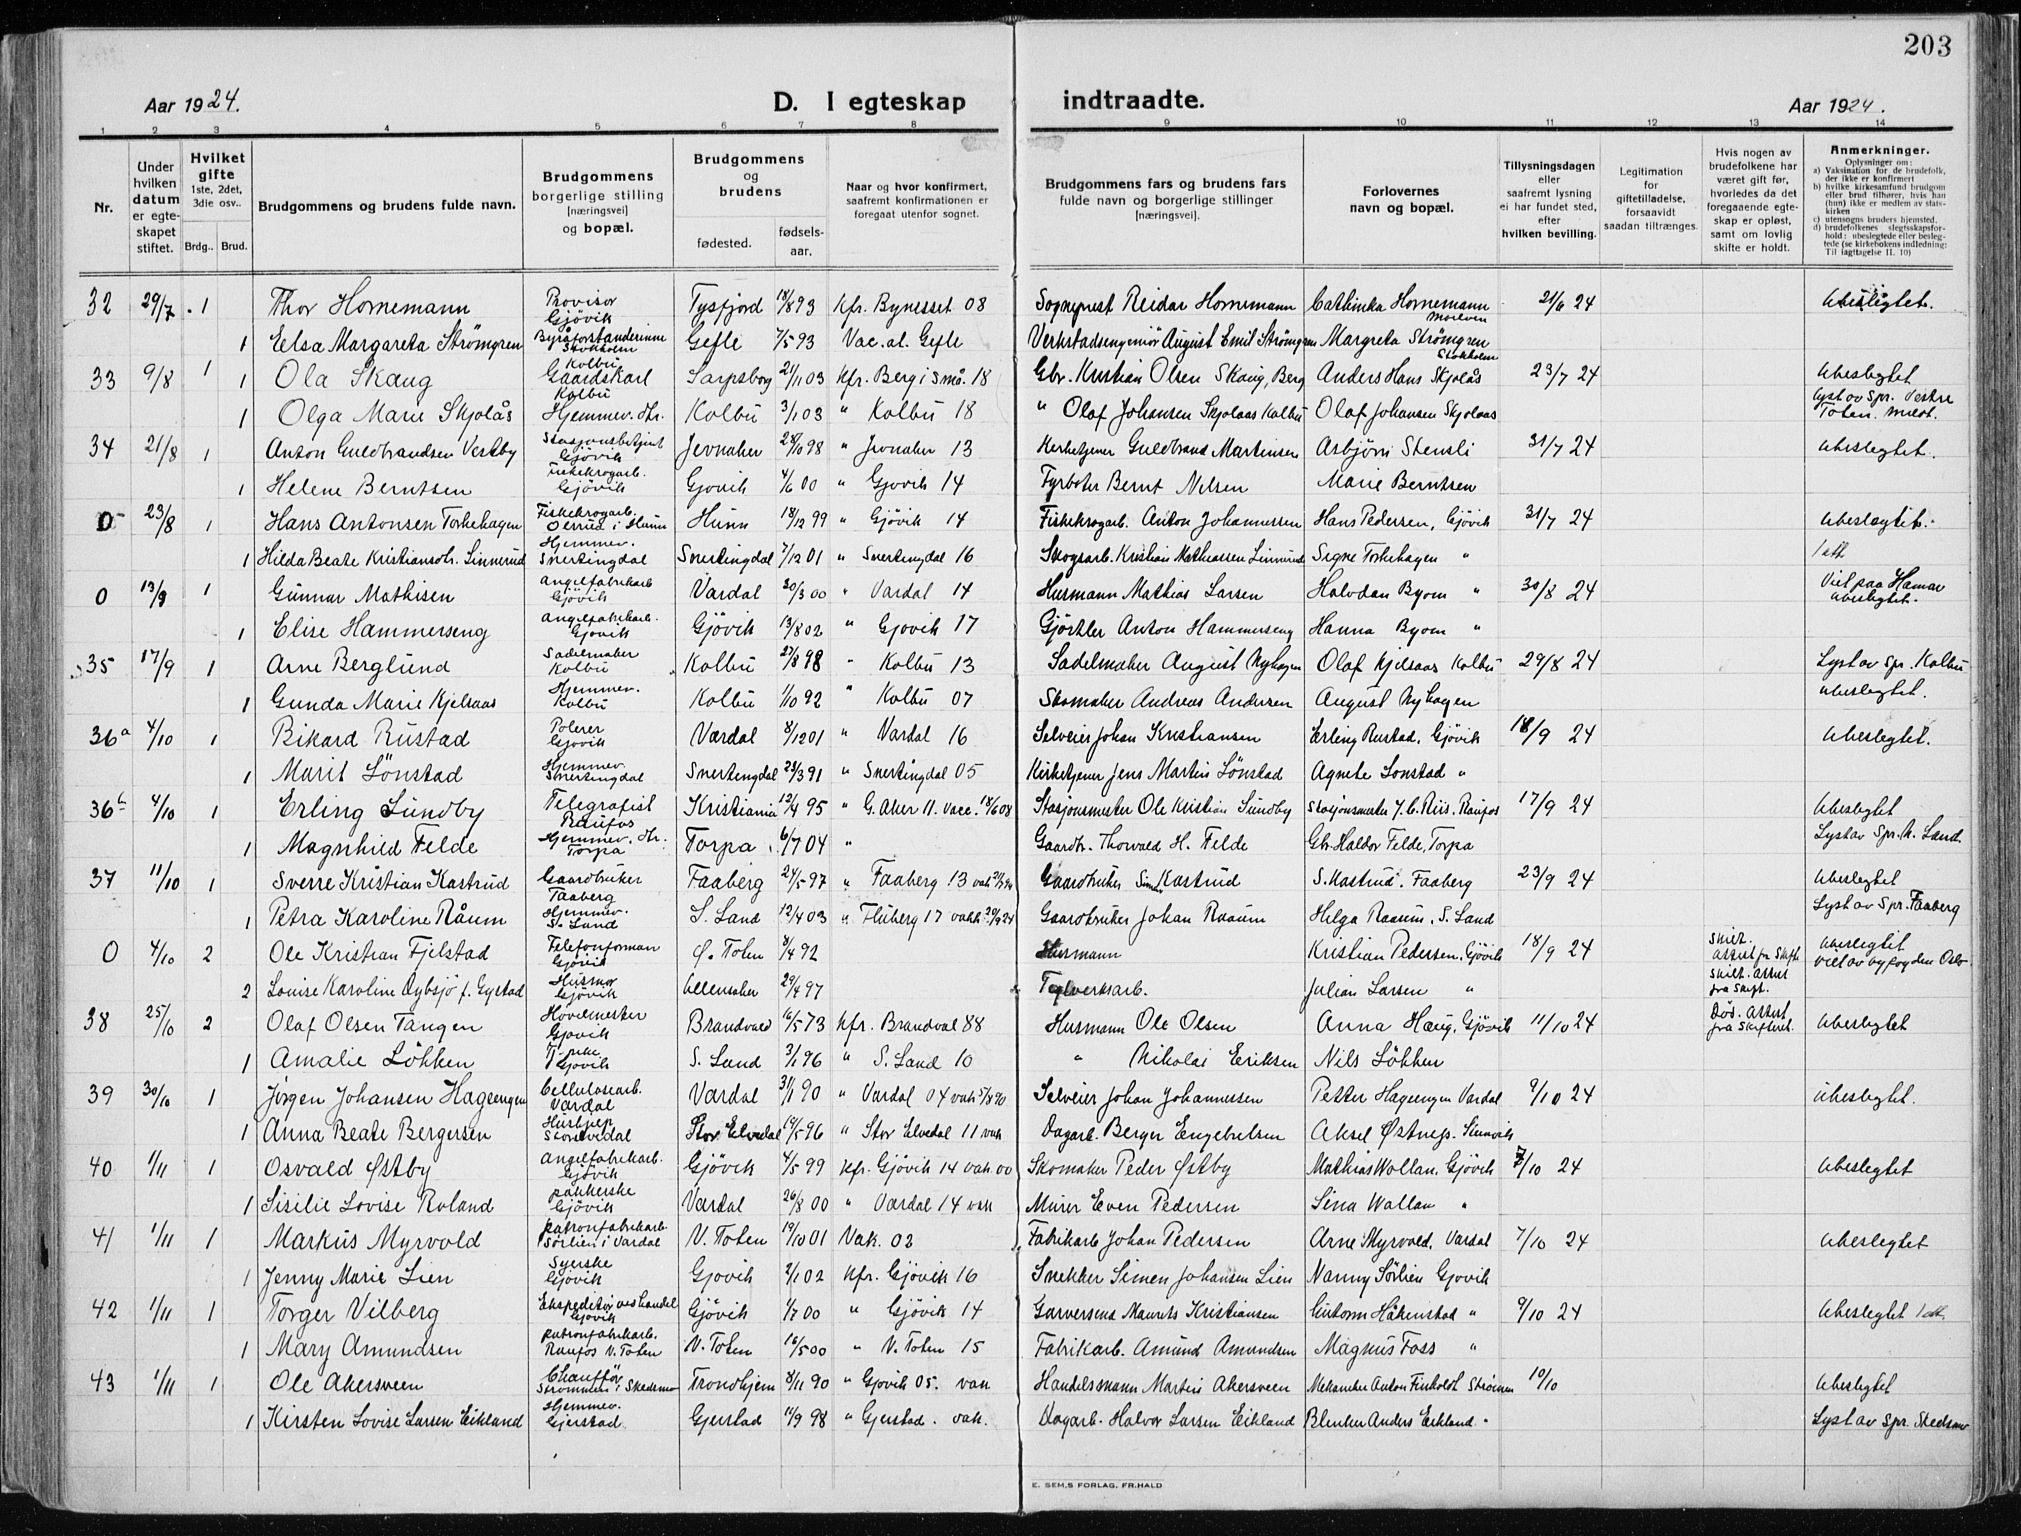 203
Aar 1924.
D. I egteskap indtraadte.
Aar 1924.
1 2 3 4 5 6 7 8 9 10 11 12 13 14
Nr.
Under hvilken datum er egteskapet stiftet.
Hvilket gifte 1ste, 2det, 3die osv..
Brdg.. Brud.
Brudgommens og brudens fulde navn.
Brudgommens borgerlige stilling [næringsvei] og bopæl.
Brudgommens og brudens
fødested.
fødselsaar.
Naar og hvor konfirmert, saafremt konfirmationen er foregaat utenfor sognet.
Brudgommens fars og brudens fars fulde navn og borgerlige stillinger [næringsvei].
Forlovernes navn og bopæl.
Tillysningsdagen eller saafremt lysning ei har fundet sted, efter hvilken bevilling.
Legitimation for giftetilladelse, forsaavidt saadan tiltrænges.
Hvis nogen av brudefolkene har været gift før, hvorledes da det foregaaende egteskap er opløst, samt om lovlig skifte er holdt.
Anmerkninger.
Oplysninger om:
a) Vaksination for de brudefolk, der ikke er konfirmert
b) hvilke kirkesamfund brudgom eller brud tilhører, hvis han (hun) ikke er medlem av statskirken
c) utensogns bruders hjemsted.
d) brudefolkenes slegtsskapsforhold: ubeslegtede eller beslegtede (se kirkebokens indledning: Til iagttagelse II. 10)
32 29/7 1 Thor Hornemann Provisor Gjövik Tysfjord 18/8 93 Kfr. Bynesset 08 Sogneprest Reidar Hornemann Cathinka Hornemann 21/6 24 Ubeslægtet.
1 Elsa Margareta Strömgren Byråforstanderinne Stokholm Gefle 7/5 93 Vac. at. Gefle Verkstadsengeniör August Emil Strömgren Margreta Strömgren Stokholm
33 9/8 1 Ola Skaug Kolbu Gaardskarl Sarpsborg 21/11 03 Kfr. Berg i Små. 18 Gbr. Kristian Olsen Skaug, Berg Anders Hans Skjolås 23/7 24 Ubeslegtet
1 Olga Marie Skjolås Kolbu Hjemmev. Kolbu 3/1 03 " Kolbu 18 " Olaf Johansen Skjolaas Kolbu Olaf Johansen Skjolaas Lyst av Spr. Vestre Toten
34 21/8 1 Anton Guldbrandsen Vestby Stasjonsbetjent Gjövik Jevnaker 28/10 98 " Jevnaker 13 Kirketjener Guldbrand Martinsen Asbjörn Stensli 31/7 24 Ubeslegtet.
1 Helene Berntsen Fiskekrogarb. Gjövik Gjovik 4/6 00 " Gjovik 14 Fyrböter Bernt Nilsen Marie Berntsen
0 23/8 1 Hans Antonsen Torkehagen Fiskekrogarb. i Hunn Hunn 18/12 99 " Gjövik 14 Fiskekrogarb. Anton Johannessen Hans Pedersen, Gjövik 31/7 24 Ubeslegtet.
1 Hilda Beate Kristiansdtr. Linnerud Hjemmev. Snertingdal Snertingdal 7/12 01 " Snertingdal 16 Skogsarb. Kristian Mathiassen Linnerud Signe Torkehagen " 1 att
0 13/9 1 Gunnar Mathisen Angelfabrikarb Gjövik Vardal 20/3 00 " Vardal 14 Husmann Mathias Larsen Halvdan Byom " 30/8 24 Viet paa Hamar Ubeslegtet.
1 Elise Hammerseng Angelfabrikarb. Gjövik Gjövik 13/8 02 " Gjovik 17 Gjörtler Anton Hammerseng Hanna Byom "
35 17/9 1 Arne Berglund Sadelmaker Kolbu Kolbu 27/8 98 " Kolbu 13 Sadelmaker August Nyhagen Olaf Kjelsaas Kolbu 29/8 24 Lyst av Spr. Kolbu
1 Gunda Marie Kjelsaas Hjemmev. Kolbu Kolbu 1/10 92 " Kolbu 07 Skomaker Andreas Andersen August Nyhagen Ubeslegtet.
36a 4/10 1 Rikard Rustad Polerer Gjovik Vardal 8/12 01 " Vardal 16 Selveier Johan Kristiansen Erling Rustad, Gjövik 18/9 24 Ubeslegtet.
1 Marit Lönstad Hjemmev. Snertingdal Snertingdal 23/3 91 " Snertingdal 05 Kirketjener Jens Martin Lönstad Agnete Lonstad "
36b 4/10 1 Erling Sundby Telegrafist Raufos Kristiania 12/4 95 " G. Aker 11. vacc. 18/6 08 Stasjonsmester Ole Kristian Sundby Stasjonsmester J. C. Riis. Raufos 17/9 24 Ubeslegtet
1 Magnhild Felde Hjemmev. Torpa Torpa 6/7 04 " Gaardbr. Thorvald H. Felde Gbr. Haldor Felde, Torpa Lyst av Spr. N. Land.
37 11/10 1 Sverre Kristian Kastrud Gaardbruker Faaberg Faaberg 24/5 97 " Faaberg 13 Gaardbruker Simen Kastrud S. Kastrud. Faaberg 23/9 24 Ubeslegtet
1 Petra Karoline Råum Hjemmev. S. Land S. Land 12/4 03 " Fluberg 17 vakk. 20/9 24 Gaardbruker Johan Raaum Helga Raaum, S. Land Lyst av Spr. Faaberg
0 4/10 2 Ole Kristian Fjelstad Telefonforman Gjövik Ø. Toten 8/4 92 Husmann Kristian Pedersen, Gjövik 18/9 24 Skilt. Attest fra Skift. Ubeslegtet viet av byfogden Oslo
2 Louise Karoline Dybsjö f. Gystad Husmor Gjövik Ullensaker 29/4 97 Teglverksarb. Julian Larsen " Skilt. Attest fra Skift.
38 25/10 2 Olaf Olsen Tangen Hovelmester Gjovik Brandvold 16/5 73 Kfr. Brandval 88 Husmann Ole Olsen Anna Haug, Gjövik 11/10 24 Död. Attest fra Skifteret. Ubeslegtet
1 Amalie Lökken Gjövik S. Land 3/1 96 " S. Land 10 " Nikolai Eriksen Nils Lökken
39 30/10 1 Jörgen Johansen Hagengen Cellulosearb. Vardal Vardal 31/1 90 " Vardal 04 vak 5/8 90 Selveier Johan Johannessen Petter Hagengen Vardal 9/10 24 Ubeslegtet.
1 Anna Beate Bergersen Hushjelp Storelvedal Stor Elvedal 14/5 96 " Stor Elvedal 11 vak Dagarb. Berger Engebretsen Aksel Østnes.
40 1/11 1 Osvald Østby Angelfabrikarb. Gjövik Gjövik 4/5 99 Kfr. Gjövik 14 vak. 00 Skomaker Peder Østby Mathias Wollan, Gjövik 7/10 24 Ubeslegtet
1 Sisilie Lovise Roland pakkerske Gjövik Vardal 26/8 00 " Vardal 14 vak Murer Even Pedersen Sina Wallan "
41 1/11 1 Markus Myrvold patronfabrikarb Sørlien i Vardal V. Toten 19/10 01 Vak. 02 Fabrikarb Johan Pedersen Arne Myrvold, Vardal 7/10 24 Ubeslegtet
1 Jenny Marie Lien Syerske Gjövik Gjovik 2/1 02 Kfr. Gjövik 16 Snekker Simen Johansen Lien Nanny Sörlien Gjovik
42 1/11 1 Torger Vilberg Ekspeditör ved handel Gjövik Gjövik 1/7 00 " Gjövik 14 Garversvend Maurits Kristiansen Guttorm Håkenstad " 9/10 24 Ubeslegtet 1 att.
1 Mary Amundsen patronfabrikarb. Raufos V. Toten V. Toten 16/5 00 " V. Toten 15 Fabrikarb. Amund Amundsen Magnus Foss "
43 1/11 1 Ole Akersveen Chauffør Strömmen i Skedsmo Trondhjem 8/11 90 " Gjovik 05. vak Handelsmann Martin Akersveen Mekaniker Anton Finholdt Strömmen 10/10 Ubeslegtet
1 Kirsten Lovise Larsen Eikland Hjemmev. Gjerstad Gjerstad 11/9 98 " Gjerstad. vak. Dagarb. Halvor Larsen Eikland Blinker Anders Eikland " Lyst av Spr. Skedsmo
E. SEM,S FORLAG, FR.HALD